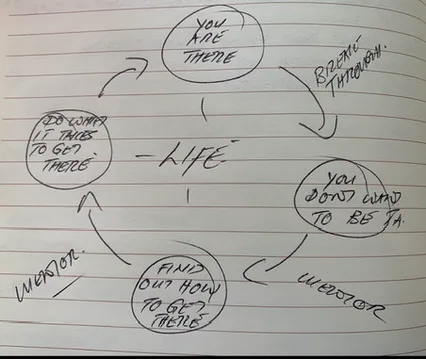 YOU
ARE
THERE
BREAK
THROUGH.
DO WHAT
IT TAKES
TO GET
THERE
- LIFE
YOU
DON'T WANT
TO BE
FIND
OUT HOW
TO GET
THERE
MENTOR.
MENTOR